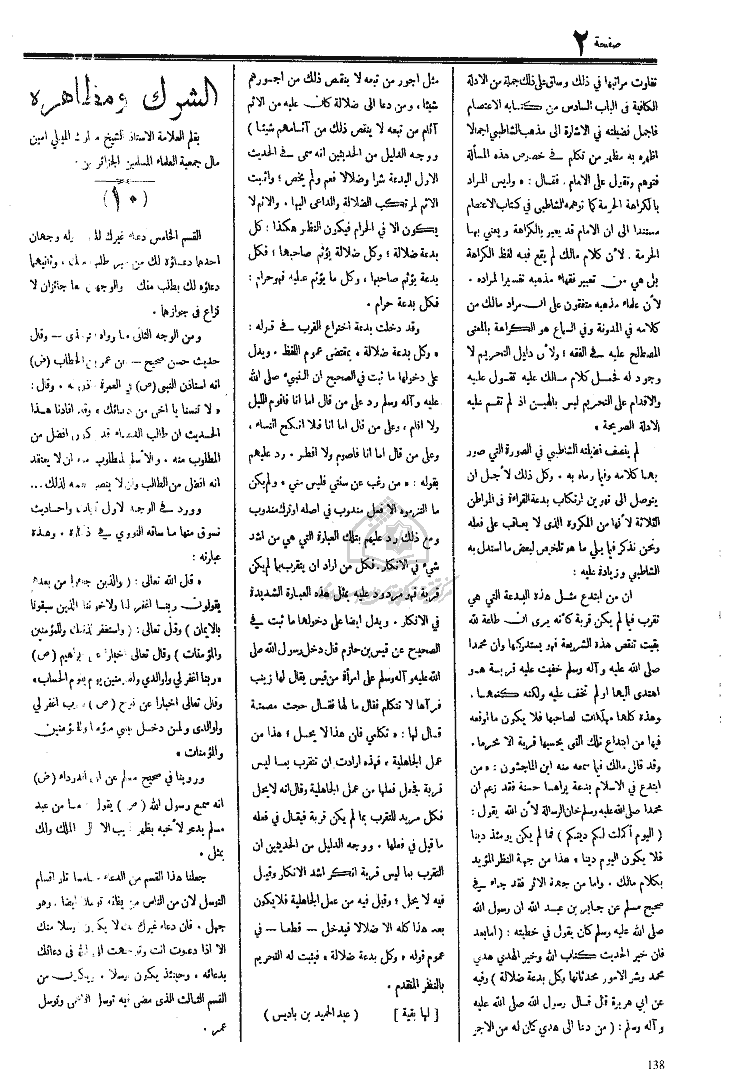 صفحة ٢
تفاوت مراتبها في ذلك وساق على ذلك جملة من الادلة
الكافية في الباب السادس من كتابه الاعتصام
فاجمل فضيلته في الاشارة الى مذهب الشاطبي اجمالا
اظهره به مظهر من تكلم في خصوص هذه المسألة
فتوهم وتقول على الامام . فقال : « وليس المراد
بالكراهة الحرمة كما توهمه الشاطبي في كتاب الاعتصام
مستندا الى ان الامام قد يعبر بالكراهة ويعني بها
الحرمة . لأن كلام مالك لم يقع فيه لفظ الكراهة
بل هي من تعبير فقهاء مذهبه تفسيرا لمراده .
لأن علماء مذهبه متفقون على ان مراد مالك من
كلامه في المدونة وفي السماع هو الكراهة بالمعنى
المصطلح عليه في الفقه ؛ ولأن دليل التحريم لا
وجود له فحمل كلام مالك عليه تقول عليه
والاقدام على التحريم ليس بالهين اذ لم تقم عليه
الادلة الصريحة »
لم ينصف فضيلته الشاطبي في الصورة التي صور
بها كلامه وفيما رماه به . وكل ذلك لاجل ان
يتوصل الى تهوين ارتكاب بدعة القراءة في المواطن
الثلاثة لأنها من المكروه الذي لا يعاقب على فعله
ونحن نذكر فيما يلي ما هو تلخيص لبعض ما استدل به
الشاطبي وزيادة عليه :
ان من ابتدع مثل هذه البدعة التي هي
تقرب فيما لم يكن قربة كأنه يرى ان طاعة الله
بقيت تنقص هذه الشريعة فهو يستدركها وان محمدا
صلى الله عليه وآله وسلم خفيت عليه قربة هو
اهتدى اليها او لم تخف عليه ولكنه كتمها .
وهذه كلها مهلكات لصاحبها فلا يكون ما اوقعه
فيها من ابتداع تلك التي يحسبها قربة الا محرما .
وقد قال مالك فيما سمعه منه ابن الماجشون : « من
ابتدع في الاسلام بدعة يراها حسنة فقد زعم ان
محمدا صلى الله عليه وسلم خان الرسالة لأن الله يقول :
( اليوم أكملت لكم دينكم ) فما لم يكن يومئذ دينا
فلا يكون اليوم دينا » هذا من جهة النظر المؤيد
بكلام مالك . واما من جهة الاثر فقد جاء في
صحيح مسلم عن جابر بن عبد الله ان رسول الله
صلى الله عليه وسلم كان يقول في خطبته : ( اما بعد
فان خير الحديث كتاب الله وخير الهدي هدي
محمد وشر الامور محدثاتها وكل بدعة ضلالة ) وفيه
عن ابي هريرة قال قال رسول الله صلى الله عليه
وآله وسلم : ( من دعا الى هدي كان له من الاجر
مثل اجور من تبعه لا ينقص ذلك من اجورهم
شيئا ، ومن دعا الى ضلالة كان عليه من الاثم
آثام من تبعه لا ينقص ذلك من آثامهم شيئا )
ووجه الدليل من الحديثين انه سمى في الحديث
الاول البدعة شرا وضلالا فعم ولم يخص ؛ واثبت
الاثم لمرتكب الضلالة والداعي اليها . والاثم لا
يكون الا في الحرام فيكون النظر هكذا : كل
بدعة ضلالة ؛ وكل ضلالة يؤثم صاحبها ؛ فكل
بدعة يؤثم صاحبها ، وكل ما يؤثم عليه فهو حرام ،
فكل بدعة حرام .
وقد دخلت بدعة اختراع القرب في قوله :
« وكل بدعة ضلالة » بمقتضى عموم اللفظ . ويدل
على دخولها ما ثبت في الصحيح ان النبي صلى الله
عليه وآله وسلم رد على من قال اما انا فاقوم الليل
ولا انام ، وعلى من قال اما انا فلا انكح النساء ،
وعلى من قال اما انا فاصوم ولا افطر . رد عليهم
بقوله : « من رغب عن سنتي فليس مني » ولم يكن
ما التزموه الا فعل مندوب في اصله او ترك مندوب
ومع ذلك رد عليهم بتلك العبارة التي هي من اشد
شيء في الانكار . فكل من اراد ان يتقرب بما لم يكن
قربة فهو مردود عليه بمثل هذه العبارة الشديدة
في الانكار . ويدل ايضا على دخولها ما ثبت في
الصحيح عن قيس بن حازم قال دخل رسول الله صلى
الله عليه وآله وسلم على امرأة من قيس يقال لها زينب
فرآها لا تتكلم فقال ما لها فقال حجت مصمتة
قال لها : « تكلمي فان هذا لا يحل ؛ هذا من
عمل الجاهلية » فهذه ارادت ان تتقرب بما ليس
قربة فجعل فعلها من عمل الجاهلية وقال انه لا يحل
فكل مريد للتقرب بما لم يكن قربة فيقال في فعله
ما قيل في فعلها . ووجه الدليل من الحديثين ان
التقرب بما ليس قربة انكر اشد الانكار وقيل
فيه لا يحل ؛ وقيل فيه من عمل الجاهلية فلا يكون
بعد هذا كله الا ضلالا فيدخل — قطعا — في
عموم قوله « وكل بدعة ضلالة » فيثبت له التحريم
بالنظر المتقدم .
[ لها بقية ] ( عبد الحميد بن باديس )
الشرك ومظاهره
بقلم العلامة الاستاذ الشيخ مبارك الميلي امين
مال جمعية العلماء المسلمين الجزائريين
( ١٠ )
القسم الخامس دعاء غيرك لك وله وجهان
احدهما دعاؤه لك من غير طلب منك ، وثانيهما
دعاؤه لك بطلب منك والوجهان جائزان لا
نزاع في جوازهما .
ومن الوجه الثاني ما رواه الترمذي — وقال
حديث حسن صحيح — عن عمر بن الخطاب (ض)
انه استأذن النبي (ص) في العمرة فاذن له . وقال :
« لا تنسنا يا اخي من دعائك » وقد افادنا هذا
الحديث ان طالب الدعاء قد يكون افضل من
المطلوب منه . والاسلم للمطلوب منه ان لا يعتقد
انه افضل من الطالب وان لا ينتصب لذلك...
وورد في الوجه الاول آيات واحاديث
نسوق منها ما ساقه النووي في اذكاره . وهذه
عبارته :
« قال الله تعالى : ( والذين جاءوا من بعدهم
يقولون ربنا اغفر لنا ولاخواننا الذين سبقونا
بالايمان ) وقال تعالى : ( واستغفر لذنبك وللمؤمنين
والمؤمنات ) وقال تعالى اخبارا عن ابراهيم (ص)
« ربنا اغفر لي ولوالدي وللمؤمنين يوم يقوم الحساب »
وقال تعالى اخبارا عن نوح (ص) « رب اغفر لي
ولوالدي ولمن دخل بيتي مؤمنا وللمؤمنين
والمؤمنات »
وروينا في صحيح مسلم عن ابي الدرداء (ض)
انه سمع رسول الله (ص) يقول ما من عبد
مسلم يدعو لأخيه بظهر الغيب الا قال الملك ولك
بمثل .
جعلنا هذا القسم من الدعاء خامسا تلو اقسام
التوسل لان من الناس من يظنه توسلا ايضا . وهو
جهل . فان دعاء غيرك لك لا يكون توسلا منك
الا اذا دعوت انت وتوجهت الى الله في دعائك
بدعائه . وحينئذ يكون توسلا . ويكون من
القسم الثالث الذي مضى فيه توسل الاعمى وتوسل
عمر .
138